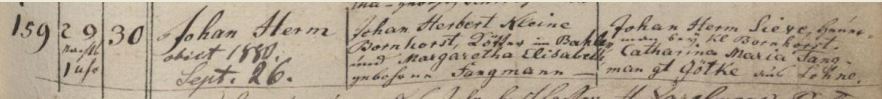 159
29
nachts
1 uhr
30
Johan Herm
obiit 1880.
Sept. 26.
Johan Herbert Kleine
Bornhorst, Kötter im
und Margaretha Elisabeth
gebohrne Tangmann
Johan Herm Lieve,
bey Kl Bornhorst.
Catharina Maria Tang-
man gt Götke aus Lohne.